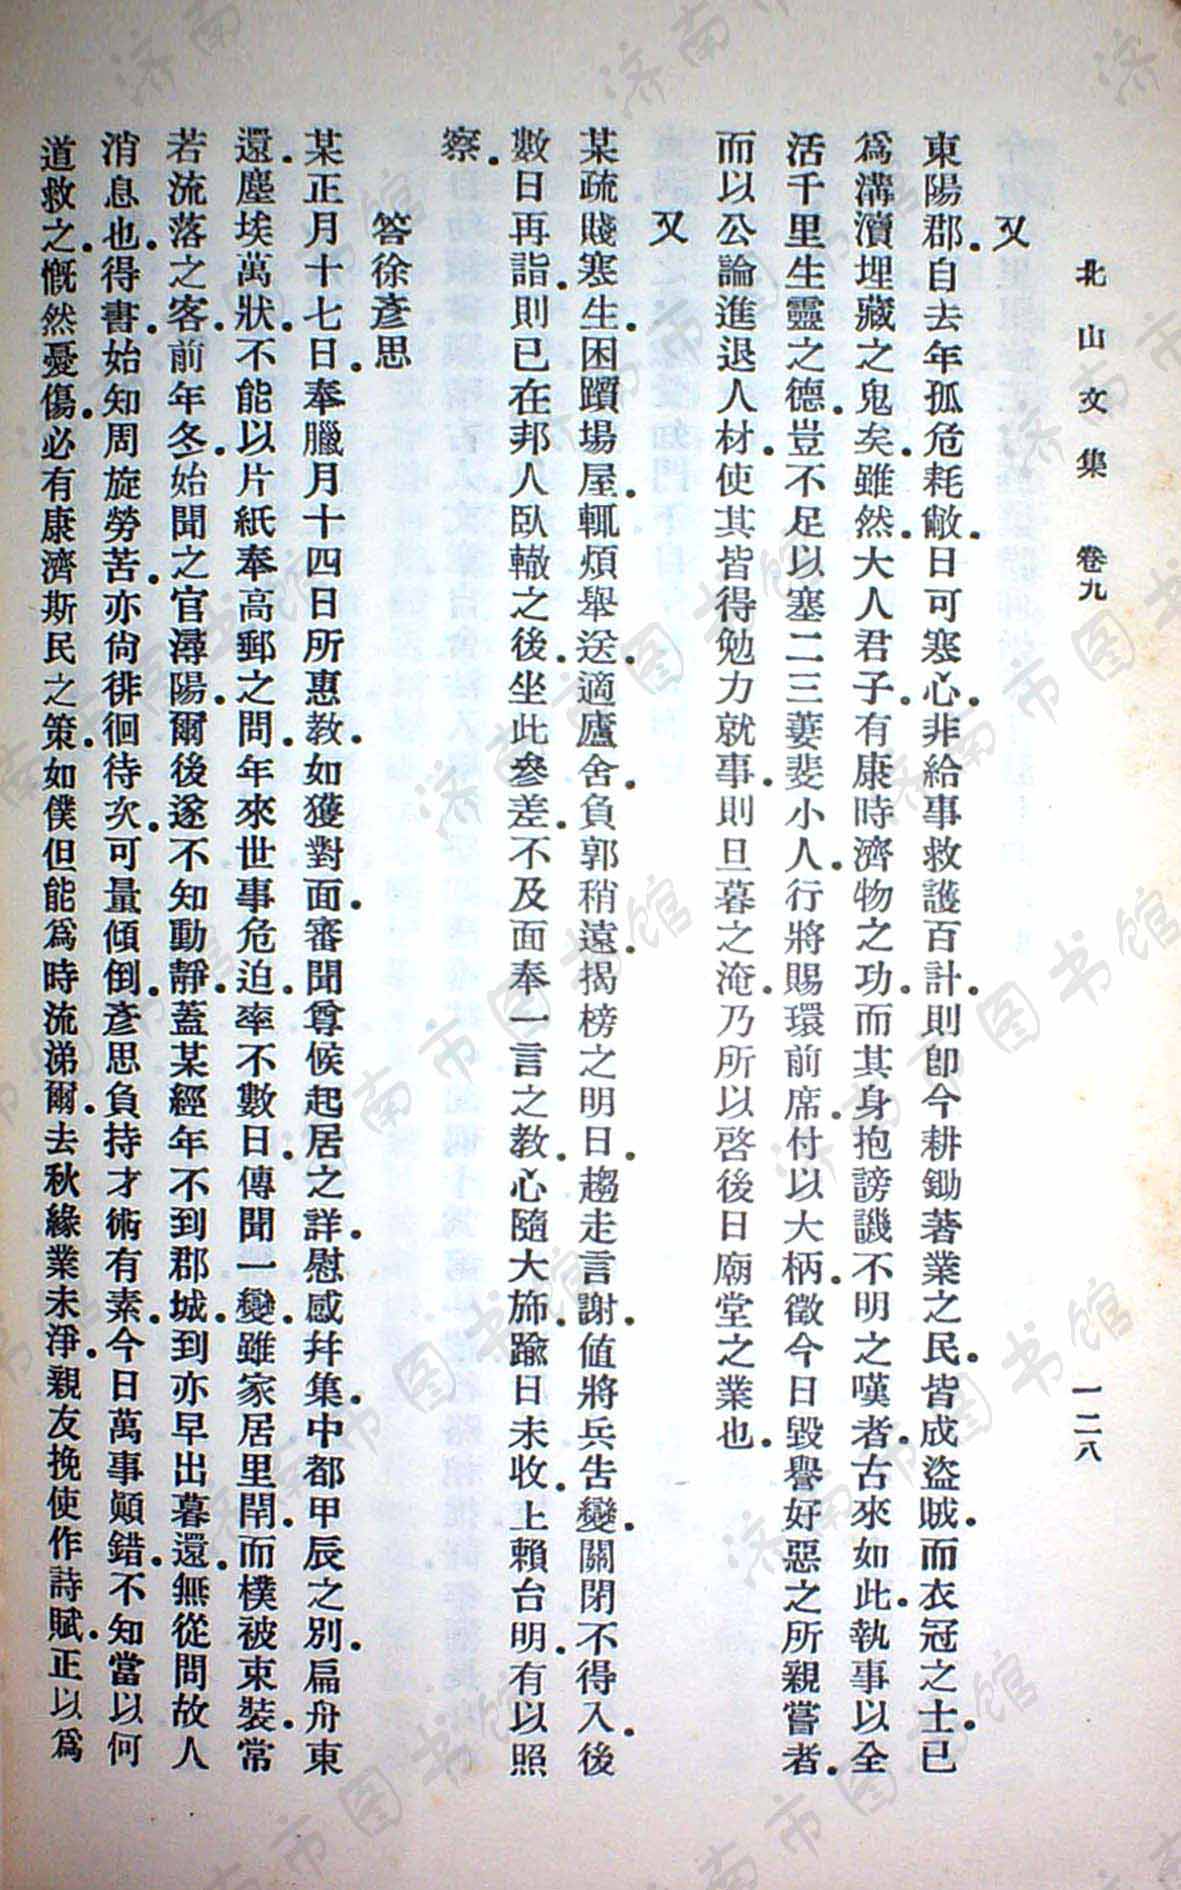 北山文集 卷九 一二八
又
東陽郡.自去年孤危耗敝.日可寒心.非給事救護百計.則卽今耕鋤著業之民.皆成盜賊.而衣冠之士.已
爲溝瀆埋藏之鬼矣.雖然.大人君子.有康時濟物之功.而其身抱謗譏不明之嘆者.古來如此.執事以全
活千里生靈之德.豈不足以塞二三萋斐小人.行將賜環前席.付以大柄.徵今日毀譽好惡之所親嘗者.
而以公論進退人材.使其皆得勉力就事.則旦暮之淹.乃所以啓後日廟堂之業也.
又
某疏賤寒生.困躓場屋.輒煩舉送.適廬舍.負郭稍遠.揭榜之明日.趨走言謝.値將兵告變.關閉不得入.後
數日再詣.則已在邦人臥轍之後.坐此參差.不及面奉一言之教.心隨大斾.踰日未收.上賴台明.有以照
察.
答徐彥思
某正月十七日.奉臘月十四日所惠教.如獲對面.審聞尊候起居之詳.慰感幷集.中都甲辰之別.扁舟東
還.塵埃萬狀.不能以片紙奉高郵之問.年來世事危迫.率不數日.傳聞一變.雖家居里閈.而樸被束裝.常
若流落之客.前年冬.始聞之官潯陽.爾後遂不知動靜.蓋某經年不到郡城.到亦早出暮還.無從問故人
消息也.得書.始知周旋勞苦.亦尙徘徊待次.可量傾倒.彥思負持才術有素.今日萬事顚錯.不知當以何
道救之.慨然憂傷.必有康濟斯民之策.如僕但能爲時流涕爾.去秋緣業未淨.親友挽使作詩賦.正以爲